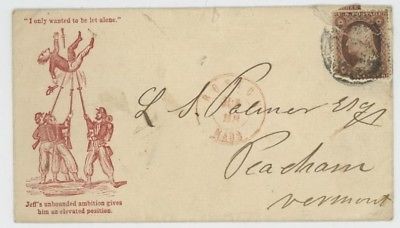 "I only wanted to be let alone."
U.S. POSTAGE
MASS.
L S. Palmer Esq
Peacham
Vermont
Jeff's unbounded ambition gives
him an elevated position.